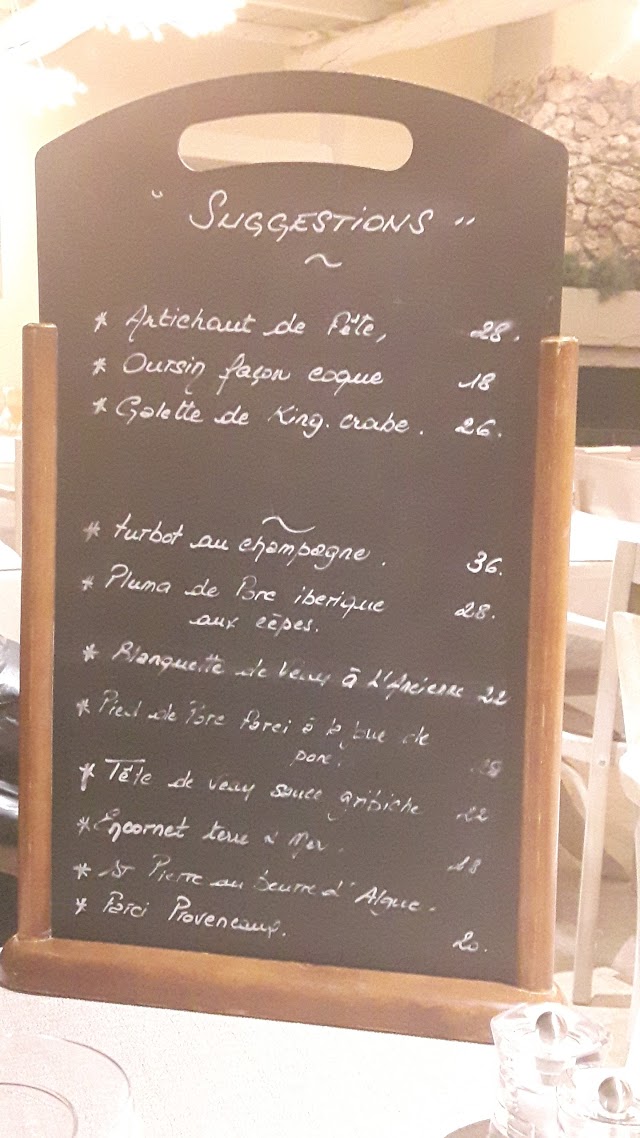 " SUGGESTIONS "
~
* Artichaut de Fête, 28.
* Oursin façon coque 18
* Galette de King. crabe. 26.
~
* turbot au champagne. 36.
* Pluma de Porc iberique 28.
aux cèpes.
* Blanquette de Veau à L'Ancienne 22
* Pied de Porc Farci à la joue de
porc.
* Tête de veau sauce gribiche 22
* Encornet terre & Mer. 18
* St Pierre au beurre d'Algue.
* Farci Provencaux. 20.